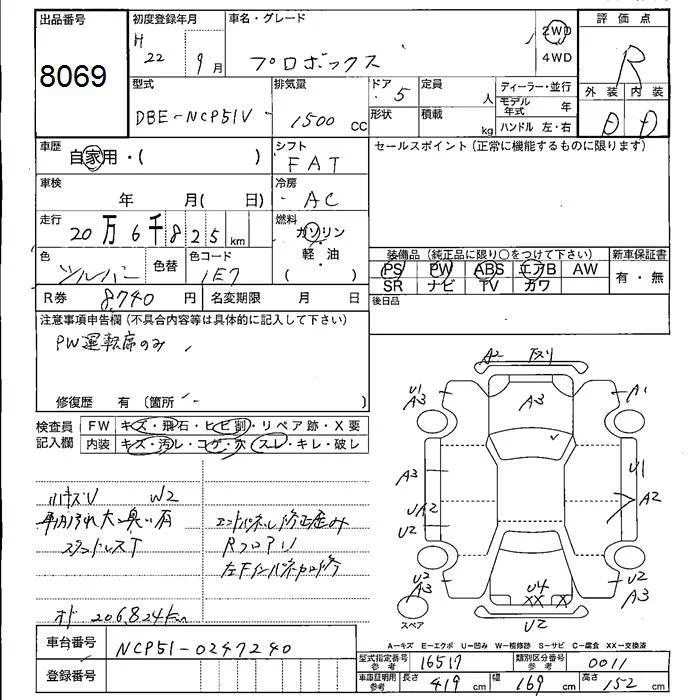 出品番号
8069
初度登録年月
H 22 9月
車名・グレード
プロボックス
2WD
4WD
評価点
R
外装 内装
D D
型式
DBE-NCP51V
排気量
1500 CC
ドア 5
形状
定員 人
積載 kg
ディーラー・並行
モデル年式 年
ハンドル 左・右
車歴
自家用・( )
シフト
FAT
セールスポイント(正常に機能するものに限ります)
車検
年 月( 日)
冷房
AC
走行
20万6千825km
燃料
ガソリン
軽・油
( )
色
色替
色コード
1E7
装備品(純正品に限り○をつけて下さい)
PS PW ABS エアB AW
SR ナビ TV カワ
新車保証書
有・無
R券 8740円
名変期限 月 日
後日品
注意事項申告欄(不具合内容等は具体的に記入して下さい)
PW運転席のみ
修復歴 有(箇所 )
検査員記入欄
FW キズ・飛石・ヒビ割・リペア跡・X要
内装 キズ・汚レ・コゲ・穴・スレ・キレ・破レ
W2
スタッドレスT
Rフロアリ
オド 206824km
A2 下スリ
U1 A3
A3
A1
A3
U1
A2
U2
U2 A3
U4
XX X
U2 A3
U2
スペア
A-キズ E-エクボ U-凹み W-補修跡 S-サビ C-腐食 XX-交換済
車台番号
NCP51-0247240
登録番号
型式指定番号 参考 16517
類別区分番号 参考 0011
車庫証明用 参考 長さ 419cm 幅 169cm 高さ 152cm